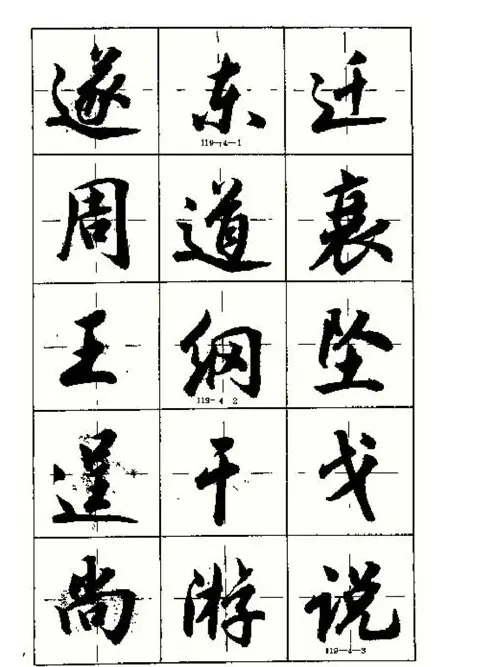 遂东迁
119-4-1
周道衰
王纲坠
119-4 2
逞干戈
尚游说
119-4-3